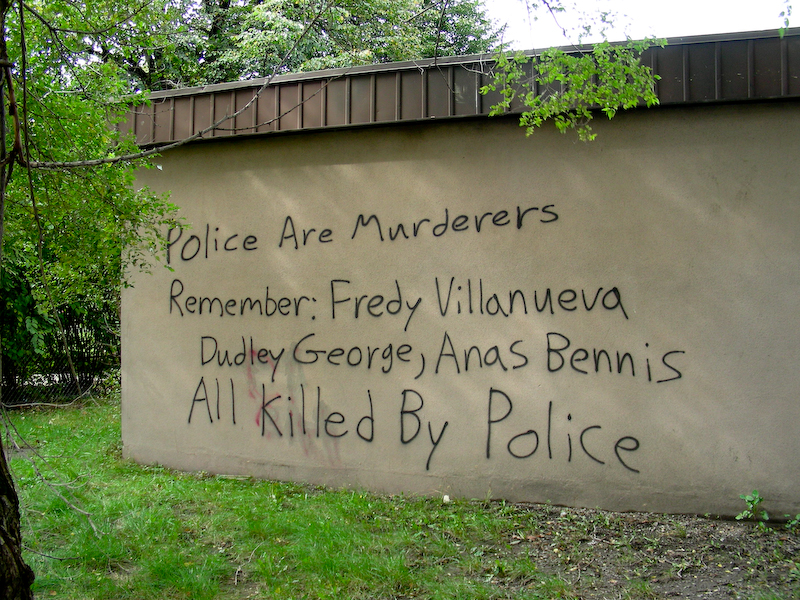 Police Are Murderers
Remember: Fredy Villanueva
Dudley George, Anas Bennis
All Killed By Police